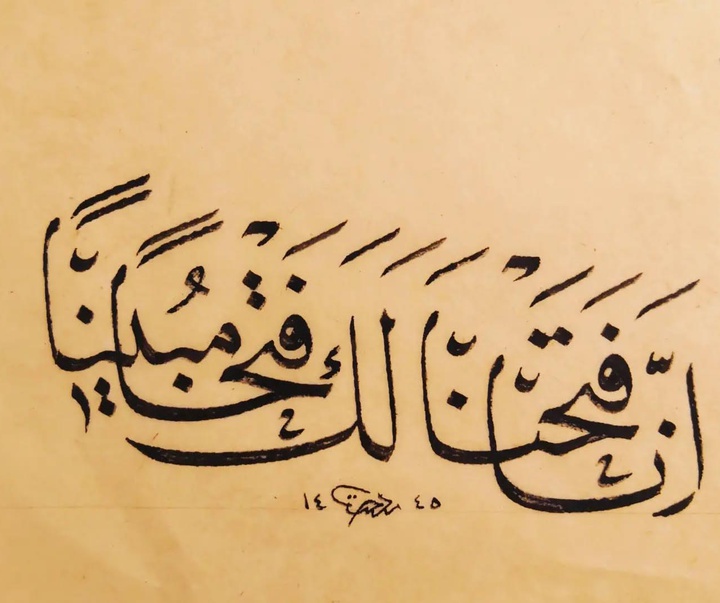 إِنَّا فَتَحْنَا لَكَ فَتْحًا مُبِينًا
١٤ ٤٥